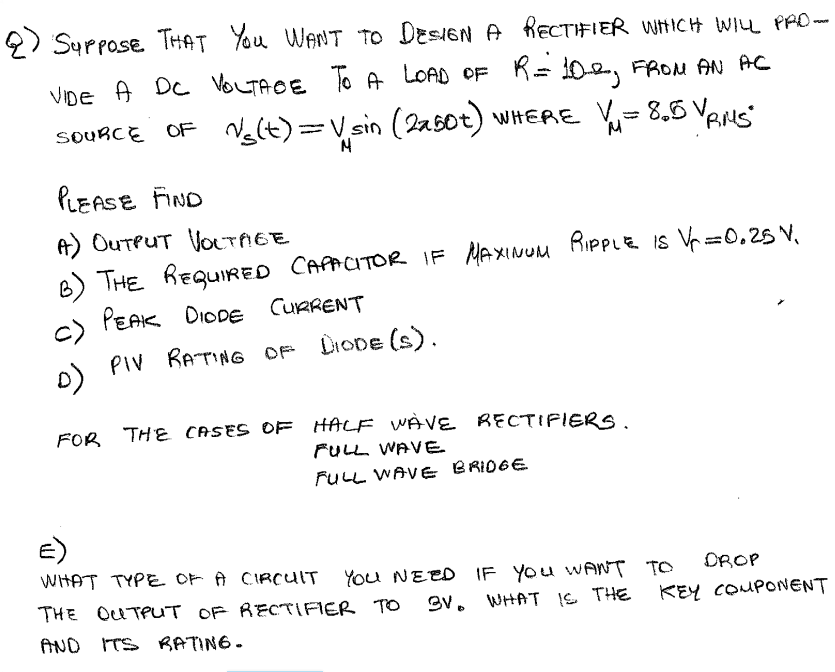 Q) SUPPOSE THAT YOU WANT TO DESIGN A RECTIFIER WHICH WILL PRO-
VIDE A DC VOLTAGE TO A LOAD OF R = 10Ω, FROM AN AC
SOURCE OF Vs(t) = V_M sin (2π50t) WHERE V_M = 8.5 V_RMS.
PLEASE FIND
A) OUTPUT VOLTAGE
B) THE REQUIRED CAPACITOR IF MAXINUM RIPPLE IS Vr = 0.25 V.
C) PEAK DIODE CURRENT
D) PIV RATING OF DIODE(S).
FOR THE CASES OF HALF WAVE RECTIFIERS.
FULL WAVE
FULL WAVE BRIDGE
E)
WHAT TYPE OF A CIRCUIT YOU NEED IF YOU WANT TO DROP
THE OUTPUT OF RECTIFIER TO 3V. WHAT IS THE KEY COMPONENT
AND ITS RATING.